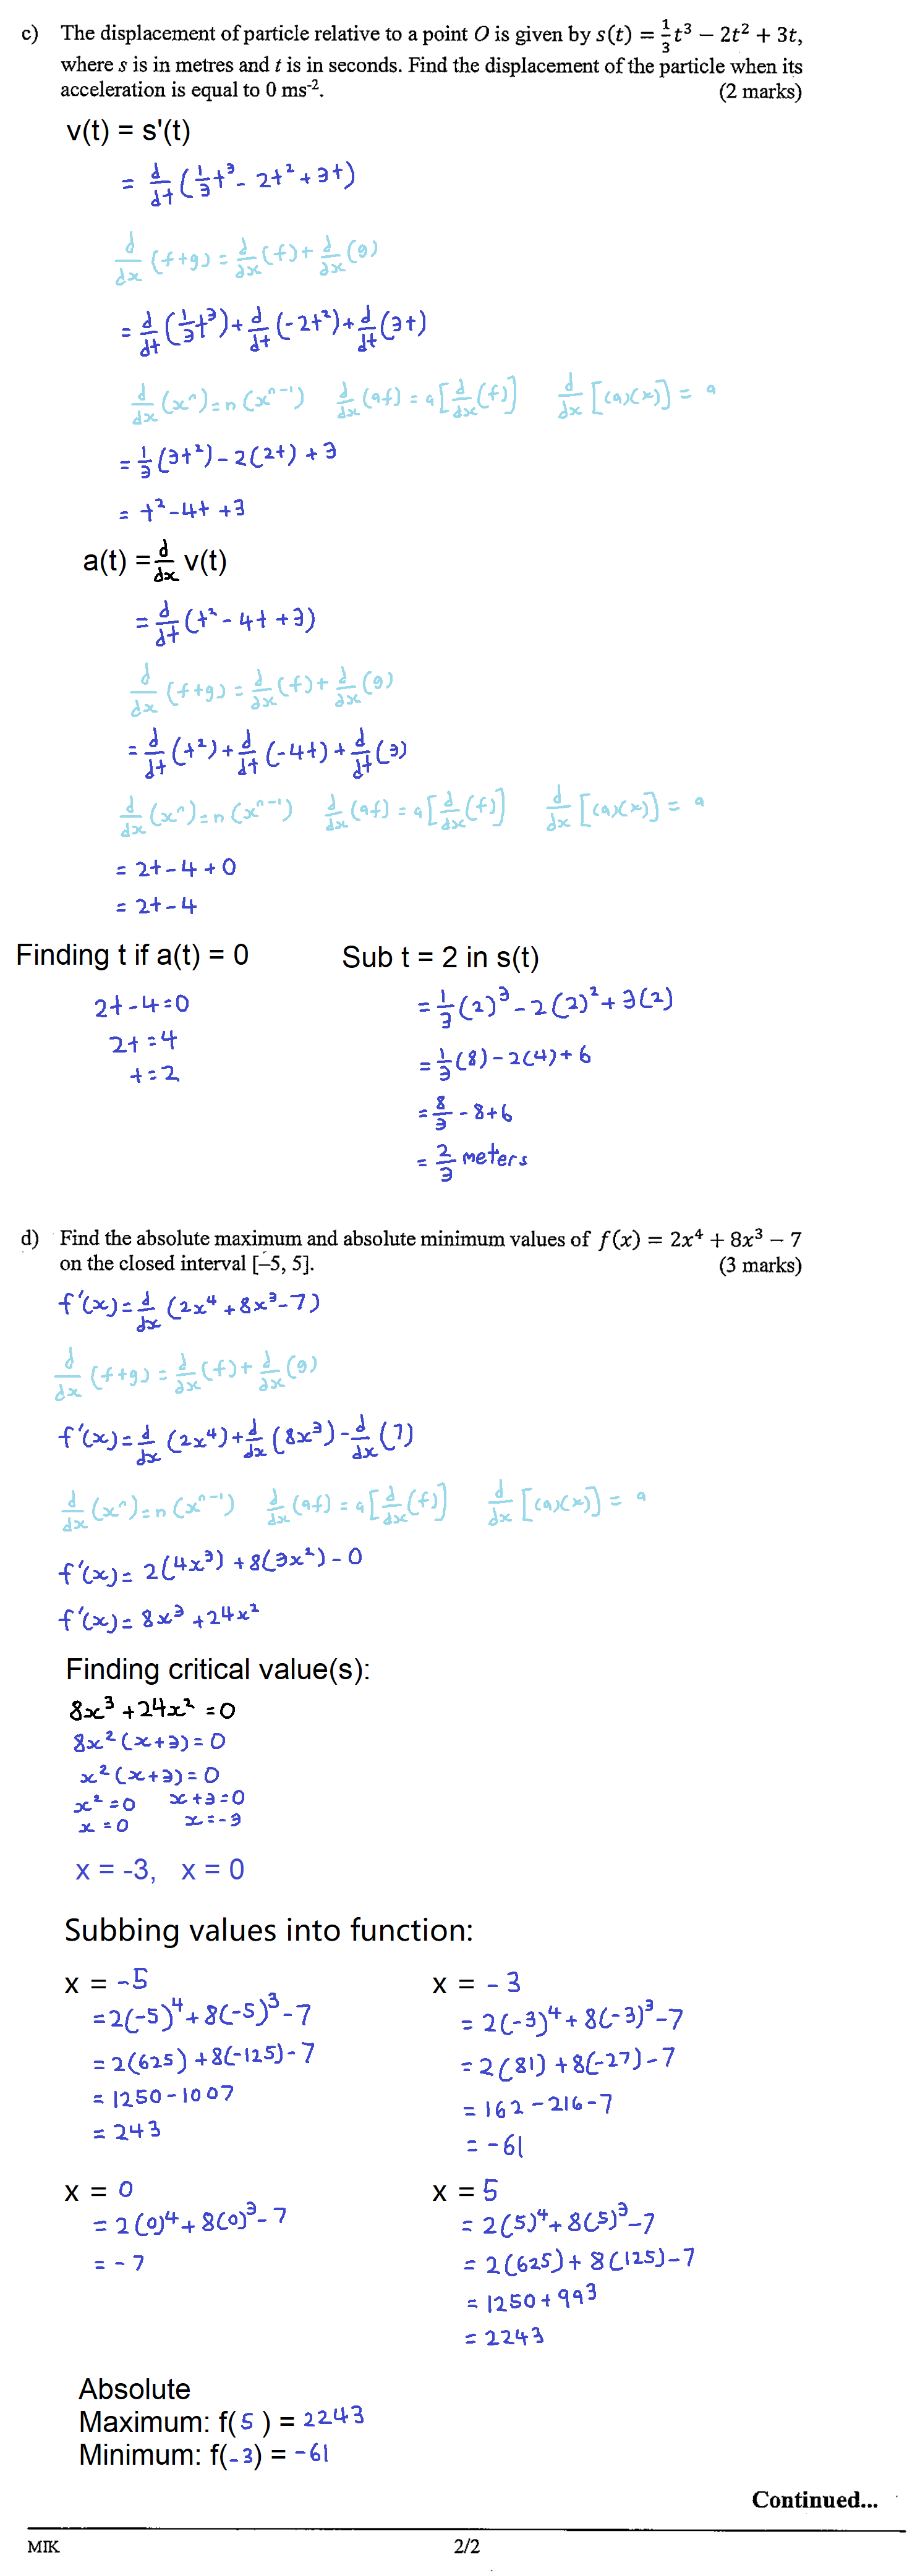 c) The displacement of particle relative to a point O is given by s(t) = 1/3 t³ − 2t² + 3t,
where s is in metres and t is in seconds. Find the displacement of the particle when its
acceleration is equal to 0 ms⁻². (2 marks)
v(t) = s'(t)
= d/dt (1/3 t³ - 2t² + 3t)
d/dx (f+g) = d/dx (f) + d/dx (g)
= d/dt (1/3 t³) + d/dt (-2t²) + d/dt (3t)
d/dx (xⁿ) = n(xⁿ⁻¹) d/dx (af) = a[d/dx (f)] d/dx [(a)(x)] = a
= 1/3 (3t²) - 2(2t) + 3
= t² - 4t + 3
a(t) = d/dx v(t)
= d/dt (t² - 4t + 3)
d/dx (f+g) = d/dx (f) + d/dx (g)
= d/dt (t²) + d/dt (-4t) + d/dt (3)
d/dx (xⁿ) = n(xⁿ⁻¹) d/dx (af) = a[d/dx (f)] d/dx [(a)(x)] = a
= 2t - 4 + 0
= 2t - 4
Finding t if a(t) = 0
2t - 4 = 0
2t = 4
t = 2
Sub t = 2 in s(t)
= 1/3 (2)³ - 2(2)² + 3(2)
= 1/3 (8) - 2(4) + 6
= 8/3 - 8 + 6
= 2/3 meters
d) Find the absolute maximum and absolute minimum values of f(x) = 2x⁴ + 8x³ − 7
on the closed interval [−5, 5]. (3 marks)
f'(x) = d/dx (2x⁴ + 8x³ - 7)
d/dx (f+g) = d/dx (f) + d/dx (g)
f'(x) = d/dx (2x⁴) + d/dx (8x³) - d/dx (7)
d/dx (xⁿ) = n(xⁿ⁻¹) d/dx (af) = a[d/dx (f)] d/dx [(a)(x)] = a
f'(x) = 2(4x³) + 8(3x²) - 0
f'(x) = 8x³ + 24x²
Finding critical value(s):
8x³ + 24x² = 0
8x² (x+3) = 0
x² (x+3) = 0
x² = 0 x+3 = 0
x = 0 x = -3
x = -3, x = 0
Subbing values into function:
x = -5
= 2(-5)⁴ + 8(-5)³ - 7
= 2(625) + 8(-125) - 7
= 1250 - 1007
= 243
x = -3
= 2(-3)⁴ + 8(-3)³ - 7
= 2(81) + 8(-27) - 7
= 162 - 216 - 7
= -61
x = 0
= 2(0)⁴ + 8(0)³ - 7
= -7
x = 5
= 2(5)⁴ + 8(5)³ - 7
= 2(625) + 8(125) - 7
= 1250 + 993
= 2243
Absolute
Maximum: f(5) = 2243
Minimum: f(-3) = -61
Continued...
MIK 2/2